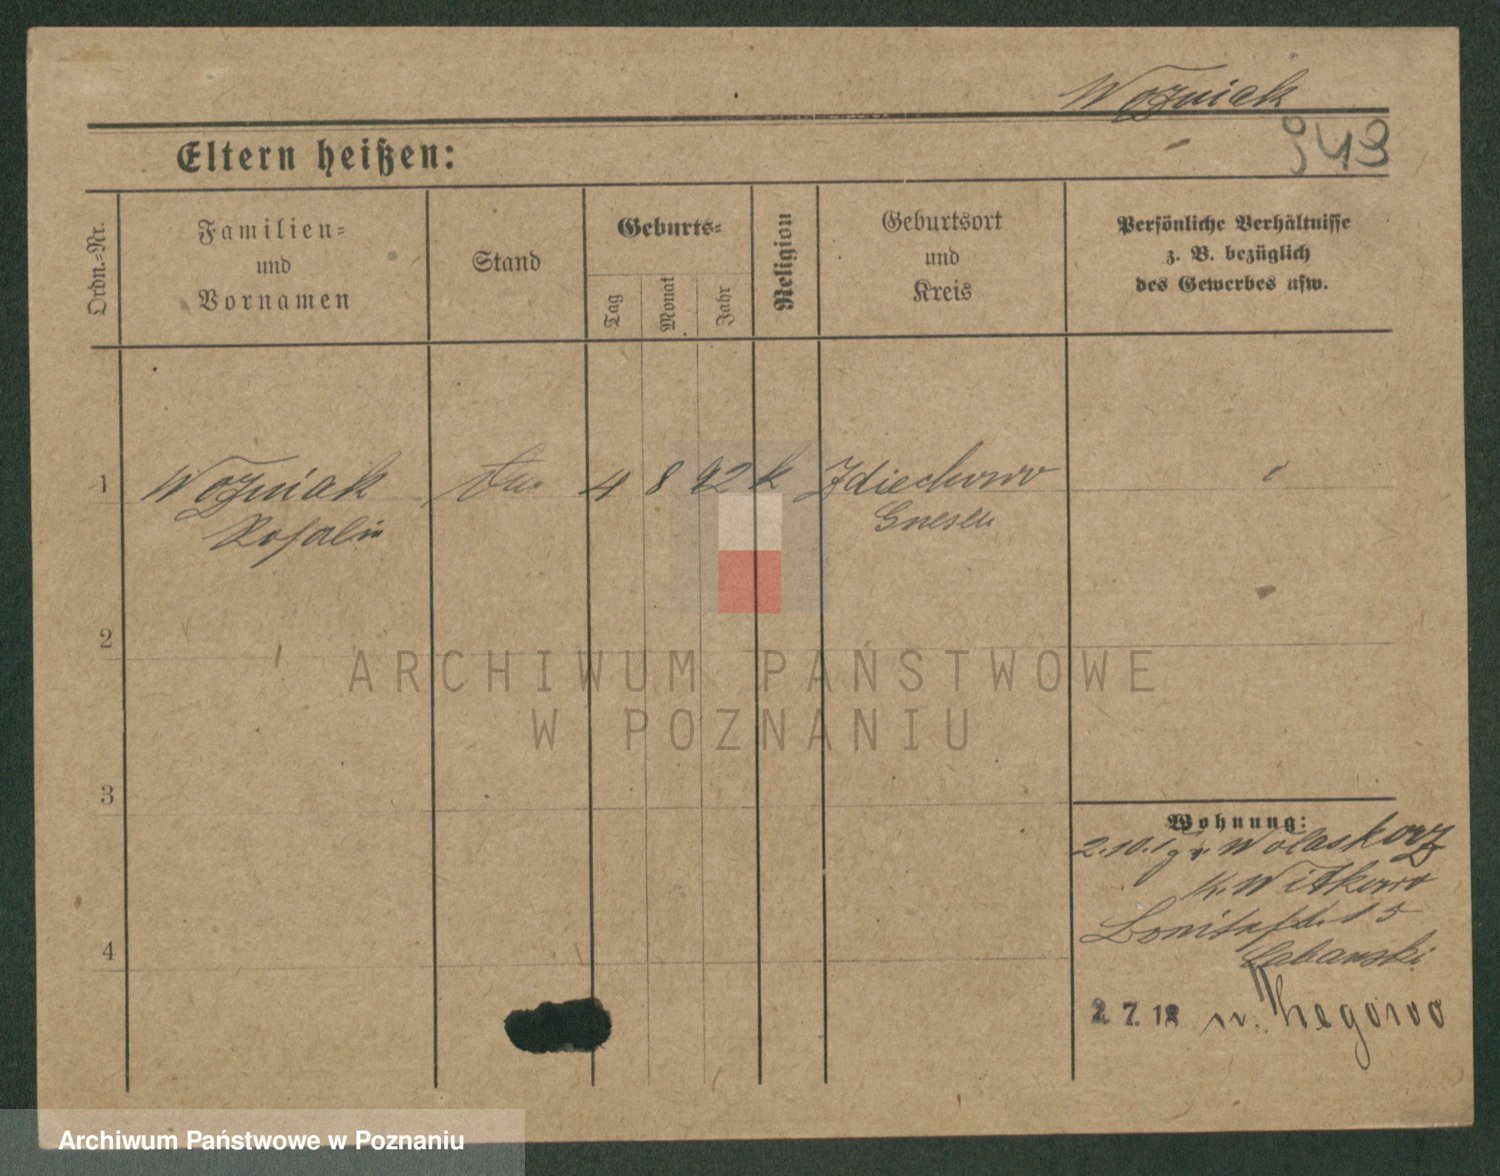 Woźniak
943
Eltern heißen:
Ordn.=Nr.
Familien=
und
Vornamen
Stand
Geburts=
Tag
Monat
Jahr
Religion
Geburtsort
und
Kreis
Persönliche Verhältnisse
z. B. bezüglich
des Gewerbes usw.
1 Woźniak 4 8 92 k Zdiechowo
Rosalie Gnesen
2
3
4
Wohnung:
2.10.1 Wolaskorz
K. Witkowo
15
Labanski
2. 7. 18 n. Thegowo
ARCHIWUM PAŃSTWOWE
W POZNANIU
Archiwum Państwowe w Poznaniu